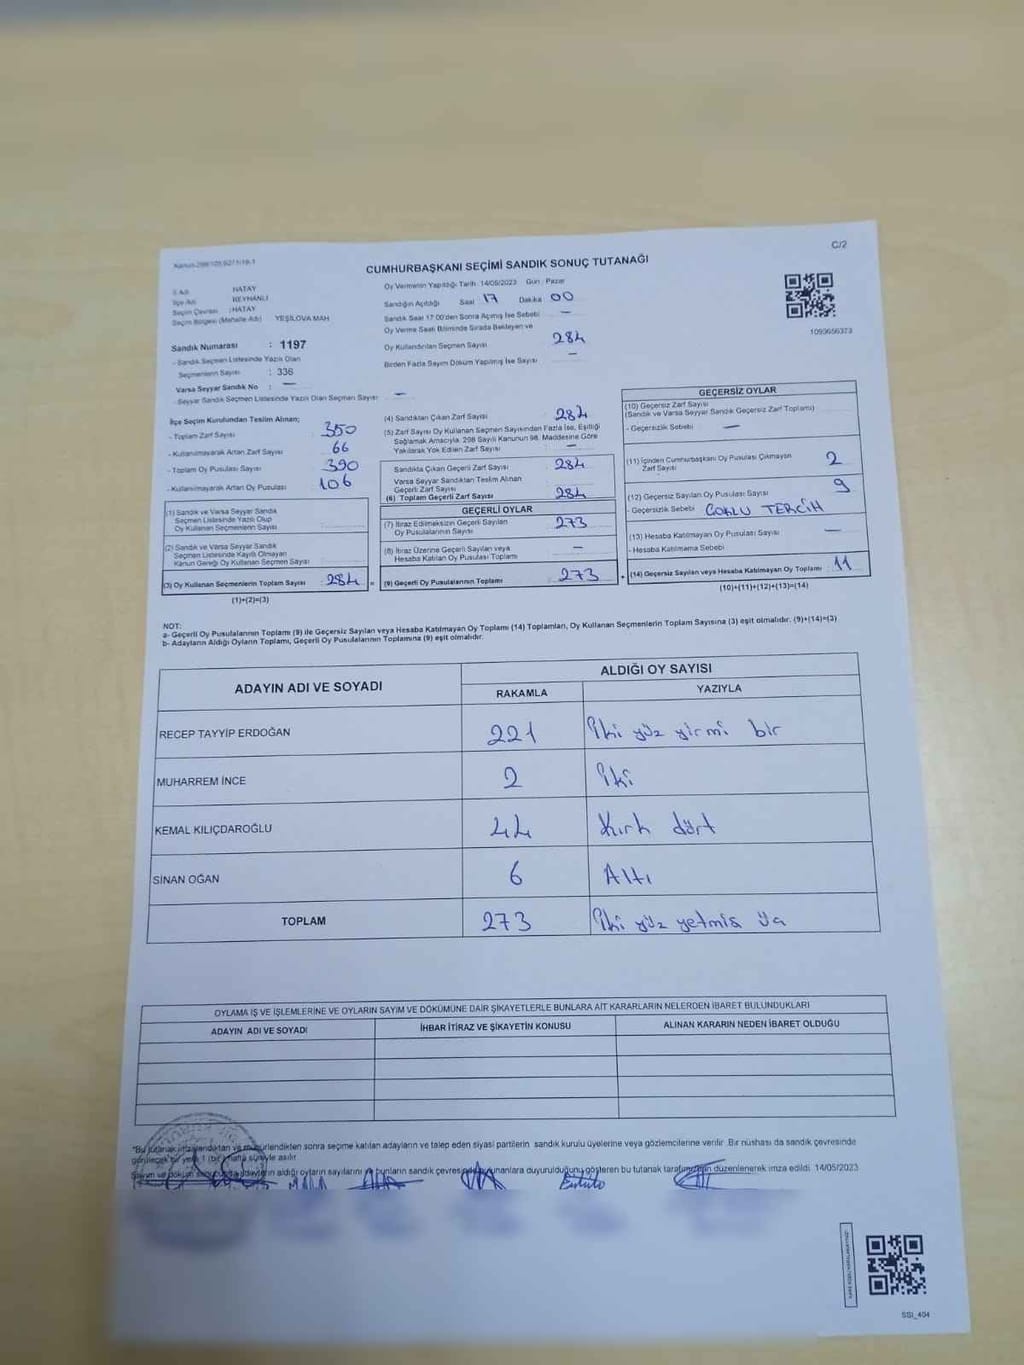 C/2
CUMHURBAŞKANI SEÇİMİ SANDIK SONUÇ TUTANAĞI
İl Adı HATAY
İlçe Adı REYHANLI
Seçim Çevresi : HATAY
Seçim Bölgesi (Mahalle Adı) YEŞİLOVA MAH
Sandık Numarası : 1197
- Sandık Seçmen Listesinde Yazılı Olan
Seçmenlerin Sayısı : 336
Varsa Seyyar Sandık No : —
- Seyyar Sandık Seçmen Listesinde Yazılı Olan Seçmen Sayısı : —
Oy Vermenin Yapıldığı Tarih 14/05/2023 Gün : Pazar
Sandığın Açıldığı Saat 17 Dakika 00
Sandık Saat 17:00'den Sonra Açılmış İse Sebebi —
Oy Verme Saati Bitiminde Sırada Bekleyen ve
Oy Kullandırılan Seçmen Sayısı 284
Birden Fazla Sayım Döküm Yapılmış İse Sayısı —
1093656373
İlçe Seçim Kurulundan Teslim Alınan;
- Toplam Zarf Sayısı 350
- Kullanılmayarak Artan Zarf Sayısı 66
- Toplam Oy Pusulası Sayısı 390
- Kullanılmayarak Artan Oy Pusulası 106
(1) Sandık ve Varsa Seyyar Sandık
Seçmen Listesinde Yazılı Olup
Oy Kullanan Seçmenlerin Sayısı
(2) Sandık ve Varsa Seyyar Sandık
Seçmen Listesinde Kayıtlı Olmayan
Kanun Gereği Oy Kullanan Seçmen Sayısı
(3) Oy Kullanan Seçmenlerin Toplam Sayısı 284 =
(1)+(2)=(3)
(4) Sandıktan Çıkan Zarf Sayısı 284
(5) Zarf Sayısı Oy Kullanan Seçmen Sayısından Fazla İse, Eşitliği
Sağlamak Amacıyla, 298 Sayılı Kanunun 98. Maddesine Göre
Yakılarak Yok Edilen Zarf Sayısı —
Sandıkta Çıkan Geçerli Zarf Sayısı 284
Varsa Seyyar Sandıktan Teslim Alınan
Geçerli Zarf Sayısı
(6) Toplam Geçerli Zarf Sayısı 284
GEÇERLİ OYLAR
(7) İtiraz Edilmeksizin Geçerli Sayılan
Oy Pusulalarının Sayısı 273
(8) İtiraz Üzerine Geçerli Sayılan veya
Hesaba Katılan Oy Pusulası Toplamı —
(9) Geçerli Oy Pusulalarının Toplamı 273 +
GEÇERSİZ OYLAR
(10) Geçersiz Zarf Sayısı
(Sandık ve Varsa Seyyar Sandık Geçersiz Zarf Toplamı)
- Geçersizlik Sebebi —
(11) İçinden Cumhurbaşkanı Oy Pusulası Çıkmayan
Zarf Sayısı 2
(12) Geçersiz Sayılan Oy Pusulası Sayısı 9
- Geçersizlik Sebebi ÇOKLU TERCİH
(13) Hesaba Katılmayan Oy Pusulası Sayısı —
- Hesaba Katılmama Sebebi
(14) Geçersiz Sayılan veya Hesaba Katılmayan Oy Toplamı : 11
(10)+(11)+(12)+(13)=(14)
NOT:
a- Geçerli Oy Pusulalarının Toplamı (9) ile Geçersiz Sayılan veya Hesaba Katılmayan Oy Toplamı (14) Toplamları, Oy Kullanan Seçmenlerin Toplam Sayısına (3) eşit olmalıdır. (9)+(14)=(3)
b- Adayların Aldığı Oyların Toplamı, Geçerli Oy Pusulalarının Toplamına (9) eşit olmalıdır.
ADAYIN ADI VE SOYADI ALDIĞI OY SAYISI
RAKAMLA YAZIYLA
RECEP TAYYİP ERDOĞAN 221 İki yüz yirmi bir
MUHARREM İNCE 2 İki
KEMAL KILIÇDAROĞLU 44 Kırk dört
SİNAN OĞAN 6 Altı
TOPLAM 273 İki yüz yetmiş
OYLAMA İŞ VE İŞLEMLERİNE VE OYLARIN SAYIM VE DÖKÜMÜNE DAİR ŞİKAYETLERLE BUNLARA AİT KARARLARIN NELERDEN İBARET BULUNDUKLARI
ADAYIN ADI VE SOYADI İHBAR İTİRAZ VE ŞİKAYETİN KONUSU ALINAN KARARIN NEDEN İBARET OLDUĞU
*Bu tutanak imzalandıktan ve mühürlendikten sonra seçime katılan adayların ve talep eden siyasi partilerin sandık kurulu üyelerine veya gözlemcilerine verilir. Bir nüshası da sandık çevresinde
görülecek bir yere 1 (bir) hafta süreyle asılır.
adayların aldığı oyların sayılarını bunların sandık çevresinde duyurulduğunu gösteren bu tutanak tarafımızdan düzenlenerek imza edildi. 14/05/2023
SSI_404